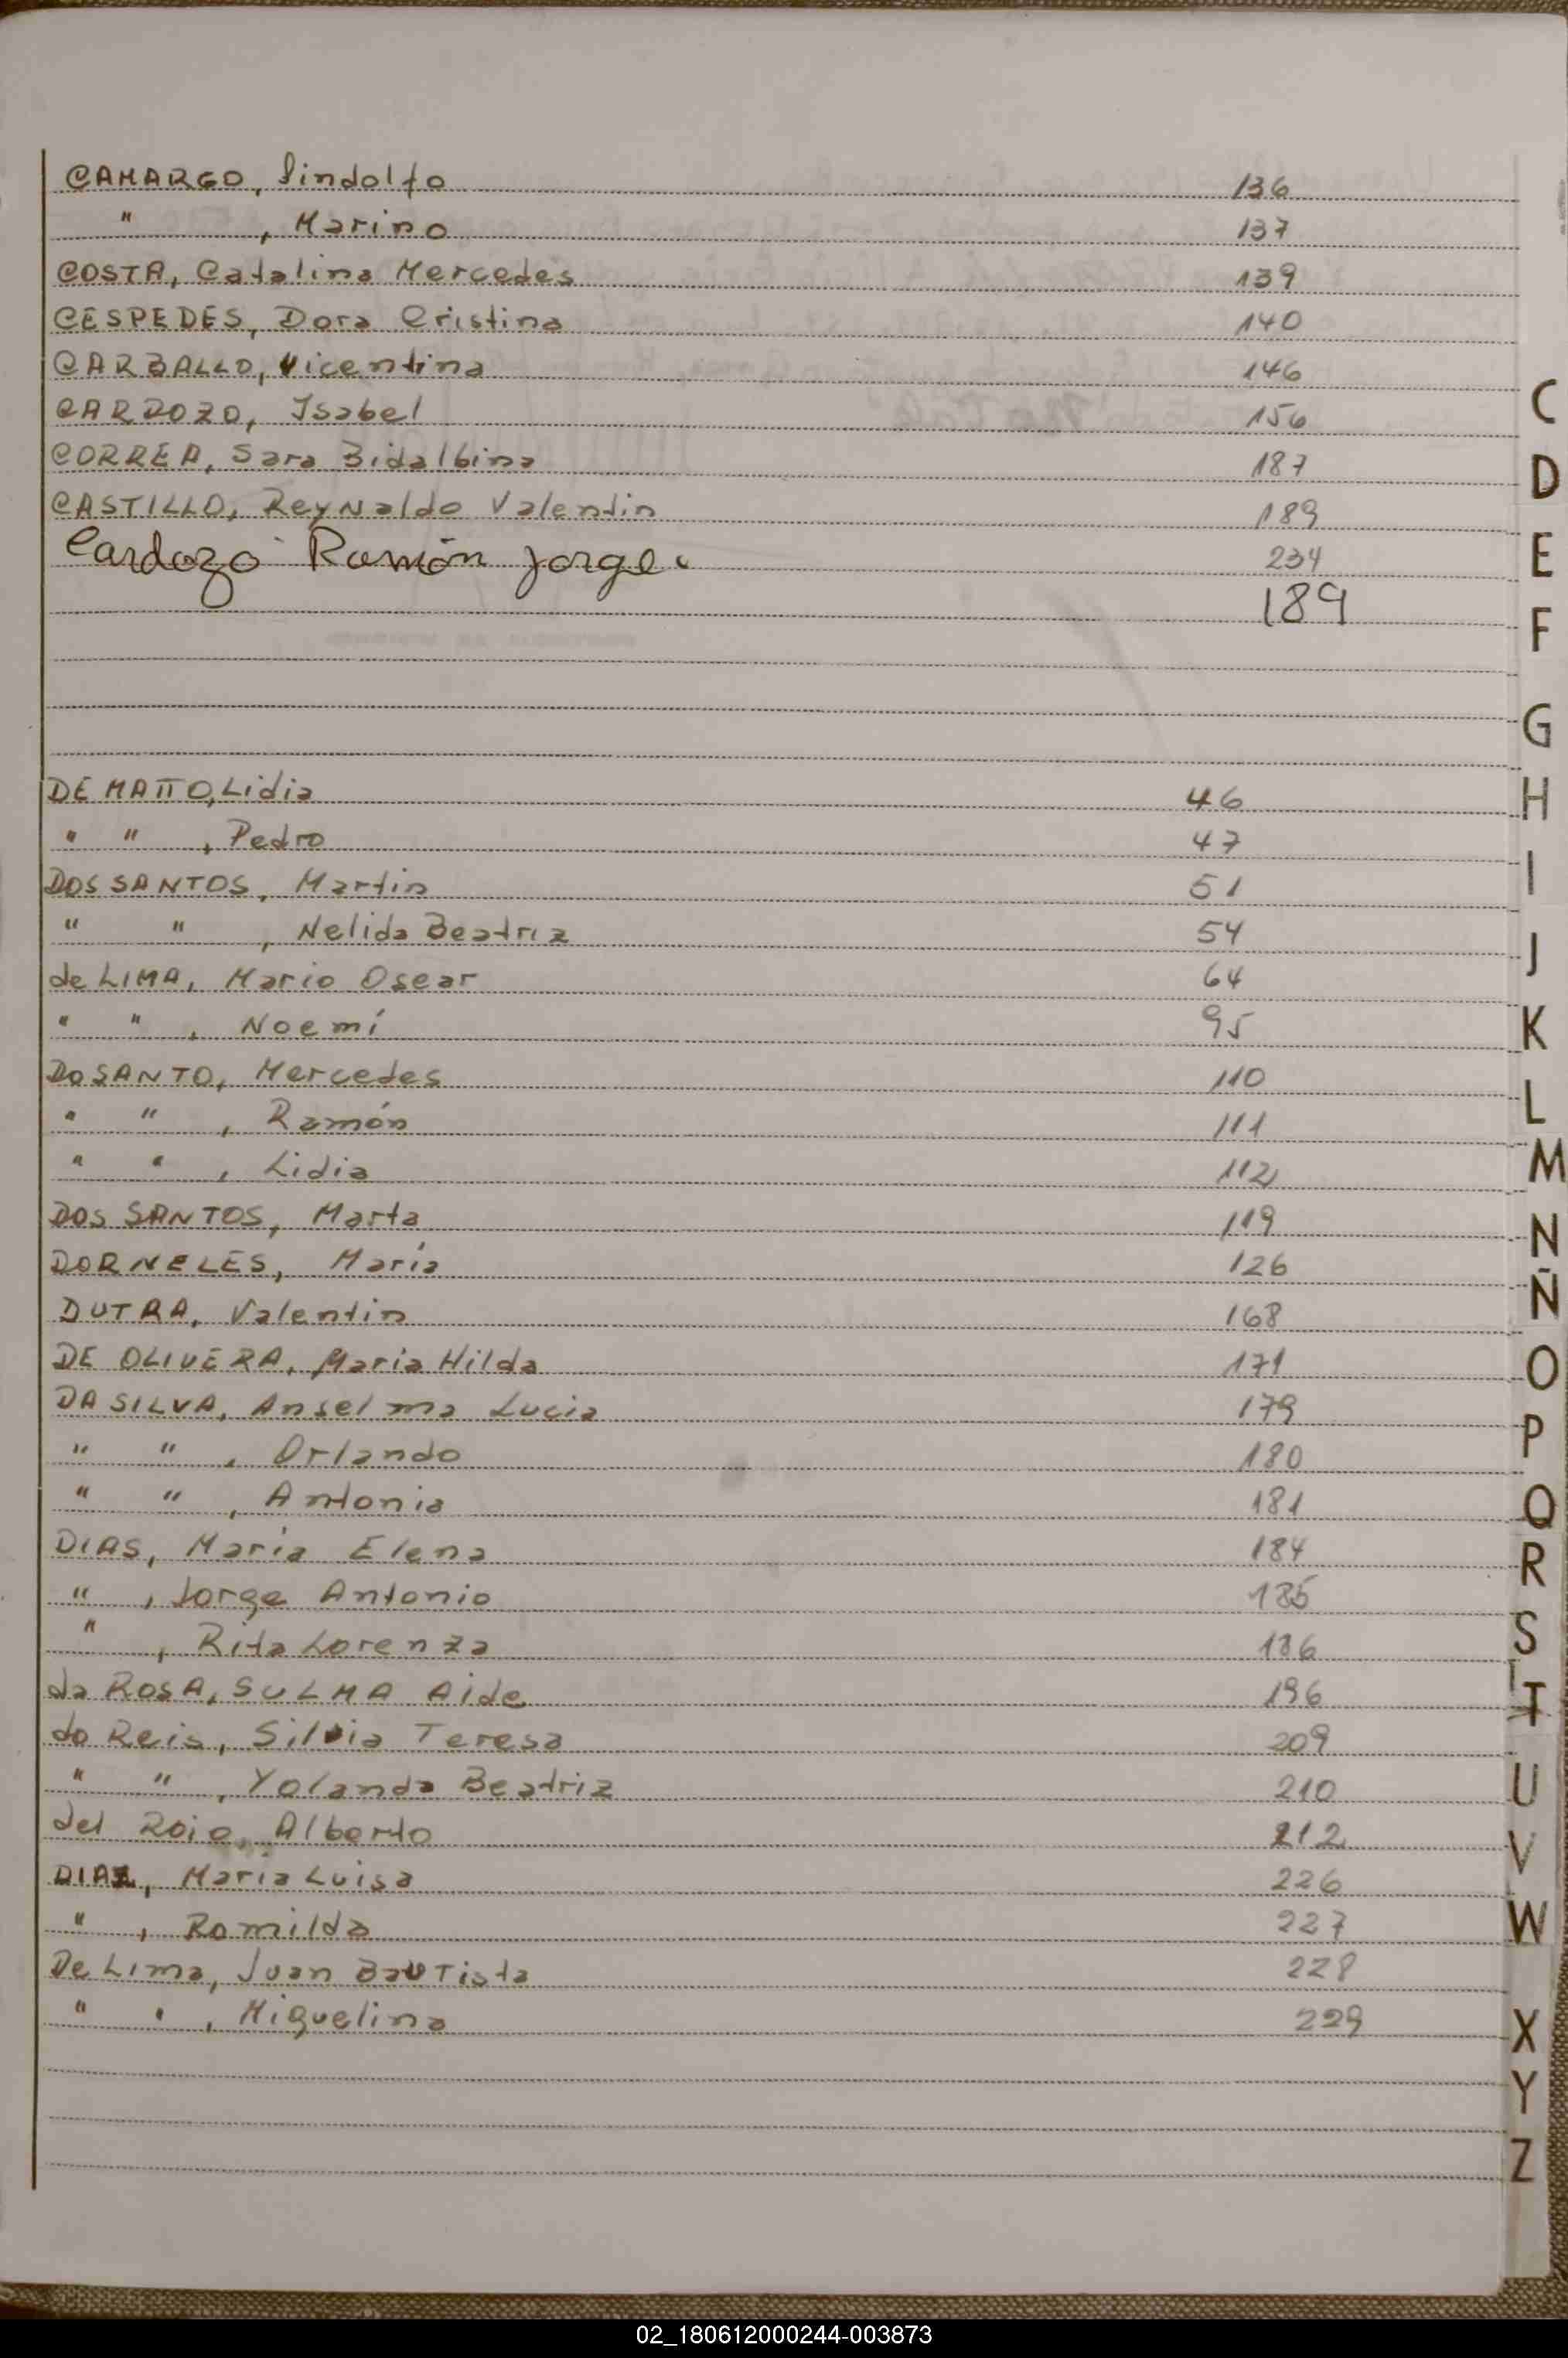 CAMARGO, Lindolfo 136
" , Marino 137
COSTA, Catalina Mercedes 139
CESPEDES, Dora Cristina 140
CARBALLO, Vicentina 146
CARDOZO, Isabel 156
CORREA, Sara Bidalbina 187
CASTILLO, Reynaldo Valentin 189
Cardozo Ramón Jorge. 234
189
DE MATTO, Lidia 46
" " , Pedro 47
DOS SANTOS, Martin 51
" " , Nelida Beatriz 54
de LIMA, Mario Oscar 64
" " , Noemí 95
DO SANTO, Mercedes 110
" " , Ramón 111
" " , Lidia 112
DOS SANTOS, Marta 119
DORNELES, María 126
DUTRA, Valentin 168
DE OLIVERA, Maria Hilda 171
DA SILVA, Anselma Lucia 179
" " , Orlando 180
" " , Antonia 181
DIAS, María Elena 184
" , Jorge Antonio 185
" , Rita Lorenza 186
da ROSA, SULMA Aide 196
do Reis, Silvia Teresa 209
" " , Yolanda Beatriz 210
del Roio, Alberto 212
DIAZ, María Luisa 226
" , Romilda 227
De Lima, Juan Bautista 228
" " , Miguelina 229
C
D
E
F
G
H
I
J
K
L
M
N
Ñ
O
P
Q
R
S
T
U
V
W
X
Y
Z
02_180612000244-003873